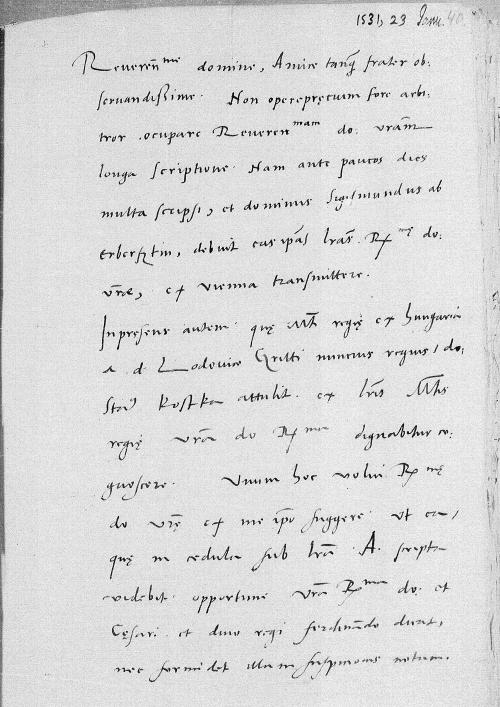 1531, 23 Janu. 40.
Reveren^me domine, Amice tanq̃ frater ob:
servandissime. Non operepręcium fore arbi:
tror occupare Reveren^mam do. vrãm
longa scriptione. Nam ante paucos dies
multa scripsi, et dominus Sigismundus ab
Erberstin, debuit eas ip̃as lrãs R^mę do:
vrę, ex vienna transmittere.
Inpresens autem quę Mt̃i regię ex hungaria
a d. Lodovico Gritti nuncius regius, do:
Sta^s Kostka attulit. ex lrĩs Mt̃is
regię vrã do R^ma dignabitur co:
gnoscere. Unum hoc volui R^mę
do vrę ex me ip̃o suggere. ut ea,
quę in cedula sub lrã A. scripta
videbit. opportune vrã R^ma do. et
Cęsari et divo regi ferdinãdo dicat,
nec formidet illam suspicionis notam.